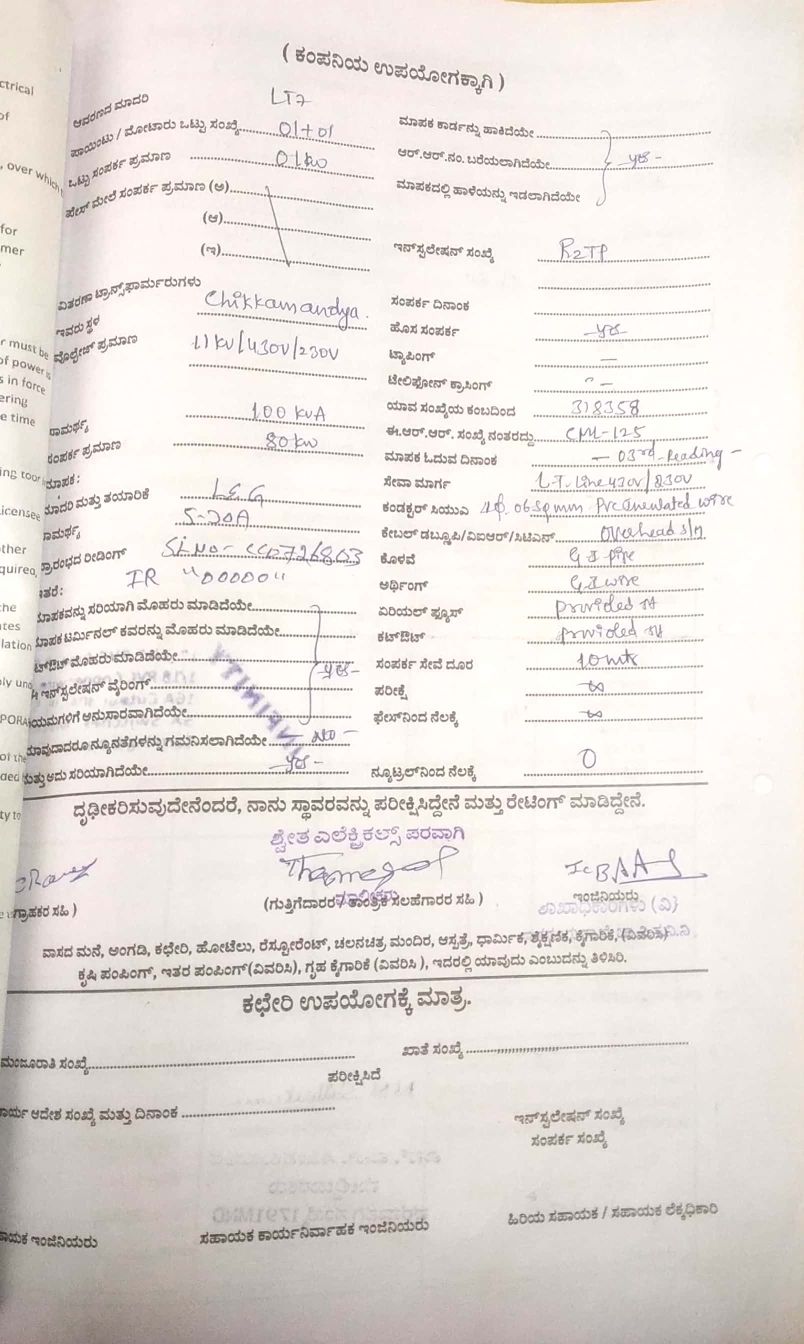 ctrical
( ಕಂಪನಿಯ ಉಪಯೋಗಕ್ಕಾಗಿ )
ಆವರಣದ ಮಾದರಿ LT7
of
ಪಾಯಿಂಟು / ಮೋಟಾರು ಒಟ್ಟು ಸಂಖ್ಯೆ 01+01
ಮಾಪಕ ಕಾರ್ಡನ್ನು ಹಾಕಿದೆಯೇ
, over which
ಒಟ್ಟು ಸಂಪರ್ಕ ಪ್ರಮಾಣ 01kw
ಆರ್.ಆರ್.ನಂ. ಬರೆಯಲಾಗಿದೆಯೇ -yes-
ಫೇಸ್ ಮೇಲೆ ಸಂಪರ್ಕ ಪ್ರಮಾಣ (ಅ)
ಮಾಪಕದಲ್ಲಿ ಹಾಳೆಯನ್ನು ಇಡಲಾಗಿದೆಯೇ
for
(ಆ)
mer
(ಇ)
ಇನ್‌ಸ್ಟಲೇಷನ್ ಸಂಖ್ಯೆ R2TP
ವಿತರಣಾ ಟ್ರಾನ್ಸ್‌ಫಾರ್ಮರುಗಳು
ಇವರು ಸ್ಥಳ Chikkamandya.
ಸಂಪರ್ಕ ದಿನಾಂಕ
r must be
ವೊಲ್ಟೇಜ್ ಪ್ರಮಾಣ 11 KV/430V/230V
ಹೊಸ ಸಂಪರ್ಕ -yes-
of power is
ಟ್ಯಾಪಿಂಗ್ —
s in force
ಟೇಲಿಫೋನ್ ಕ್ರಾಸಿಂಗ್
ering
e time
ರಾಮರ್ಥ್ಯ 100 KVA
ಯಾವ ಸಂಖ್ಯೆಯ ಕಂಬದಿಂದ 318358
ಸಂಪರ್ಕ ಪ್ರಮಾಣ 80kw
ಈ.ಆರ್.ಆರ್. ಸಂಖ್ಯೆ ನಂತರದ್ದು CML-125
ing
ಮಾಪಕ:
ಮಾಪಕ ಓದುವ ದಿನಾಂಕ — 03rd-Reading -
icensee
ಮಾದರಿ ಮತ್ತು ತಯಾರಿಕೆ L&G
ಸೇವಾ ಮಾರ್ಗ L.T. Line 430V/230V
ರಾಮರ್ಥ್ಯ 5-20A
ಕಂಡಕ್ಟರ್ ಸಿಯುಎ 1φ. 06 sqmm Pvc wire
ther
ಕೇಬಲ್ ಡಬ್ಲ್ಯೂಪಿ/ವಿಐಆರ್/ಸಿಟಿಎನ್ Overhead
quired,
ಪ್ರಾರಂಭದ ರೀಡಿಂಗ್ Sl.No-
ಕೊಳವೆ G I pipe
ಇತರೆ: IR "00000"
ಅರ್ಥಿಂಗ್ G.I wire
he
ಮಾಪಕವನ್ನು ಸರಿಯಾಗಿ ಮೊಹರು ಮಾಡಿದೆಯೇ
ಏರಿಯಲ್ ಫ್ಯೂಸ್ provided
tes
lation
ಮಾಪಕ ಟರ್ಮಿನಲ್ ಕವರನ್ನು ಮೊಹರು ಮಾಡಿದೆಯೇ
ಕಟ್‌ಔಟ್ provided
ಟ್‌ಔಟ್ ಮೊಹರು ಮಾಡಿದೆಯೇ -yes-
ಸಂಪರ್ಕ ಸೇವೆ ದೂರ 10mts
ly
ಇನ್‌ಸ್ಟಲೇಷನ್ ವೈರಿಂಗ್
ಪರೀಕ್ಷೆ ∞
PORA
ನಿಯಮಗಳಿಗೆ ಅನುಸಾರವಾಗಿದೆಯೇ
ಫೇಸ್‌ನಿಂದ ನೆಲಕ್ಕೆ ∞
of the
ಯಾವುದಾದರೂ ನ್ಯೂನತೆಗಳನ್ನು ಗಮನಿಸಲಾಗಿದೆಯೇ - NO -
ded
ಮತ್ತು ಅದು ಸರಿಯಾಗಿದೆಯೇ -yes-
ನ್ಯೂಟ್ರಲ್‌ನಿಂದ ನೆಲಕ್ಕೆ 0
ty to
ದೃಢೀಕರಿಸುವುದೇನೆಂದರೆ, ನಾನು ಸ್ಥಾವರವನ್ನು ಪರೀಕ್ಷಿಸಿದ್ದೇನೆ ಮತ್ತು ರೇಟಿಂಗ್ ಮಾಡಿದ್ದೇನೆ.
ಶ್ವೇತ ಎಲೆಕ್ಟ್ರಿಕಲ್ಸ್ ಪರವಾಗಿ
ಗ್ರಾಹಕರ ಸಹಿ )
(ಗುತ್ತಿಗೆದಾರರ / ತಾಂತ್ರಿಕ ಸಲಹೆಗಾರರ ಸಹಿ )
ಇಂಜಿನಿಯರು
ಶಾಖಾಧಿಕಾರಿಗಳು (ವಿ)
ವಾಸದ ಮನೆ, ಅಂಗಡಿ, ಕಛೇರಿ, ಹೋಟೆಲು, ರೆಸ್ಟೋರೆಂಟ್, ಚಲನಚಿತ್ರ ಮಂದಿರ, ಆಸ್ಪತ್ರೆ, ಧಾರ್ಮಿಕ, ಶೈಕ್ಷಣಿಕ, ಕೈಗಾರಿಕೆ, (ವಿವರಿಸಿ)
ಕೃಷಿ ಪಂಪಿಂಗ್, ಇತರ ಪಂಪಿಂಗ್(ವಿವರಿಸಿ), ಗೃಹ ಕೈಗಾರಿಕೆ (ವಿವರಿಸಿ ), ಇದರಲ್ಲಿ ಯಾವುದು ಎಂಬುದನ್ನು ತಿಳಿಸಿರಿ.
ಕಛೇರಿ ಉಪಯೋಗಕ್ಕೆ ಮಾತ್ರ.
ಮಂಜೂರಾತಿ ಸಂಖ್ಯೆ
ಖಾತೆ ಸಂಖ್ಯೆ
ಪರೀಕ್ಷಿಸಿದೆ
ಕಾರ್ಯ ಆದೇಶ ಸಂಖ್ಯೆ ಮತ್ತು ದಿನಾಂಕ
ಇನ್‌ಸ್ಟಲೇಷನ್ ಸಂಖ್ಯೆ
ಸಂಪರ್ಕ ಸಂಖ್ಯೆ
ಸಹಾಯಕ ಇಂಜಿನಿಯರು
ಸಹಾಯಕ ಕಾರ್ಯನಿರ್ವಾಹಕ ಇಂಜಿನಿಯರು
ಹಿರಿಯ ಸಹಾಯಕ / ಸಹಾಯಕ ಲೆಕ್ಕಧಿಕಾರಿ